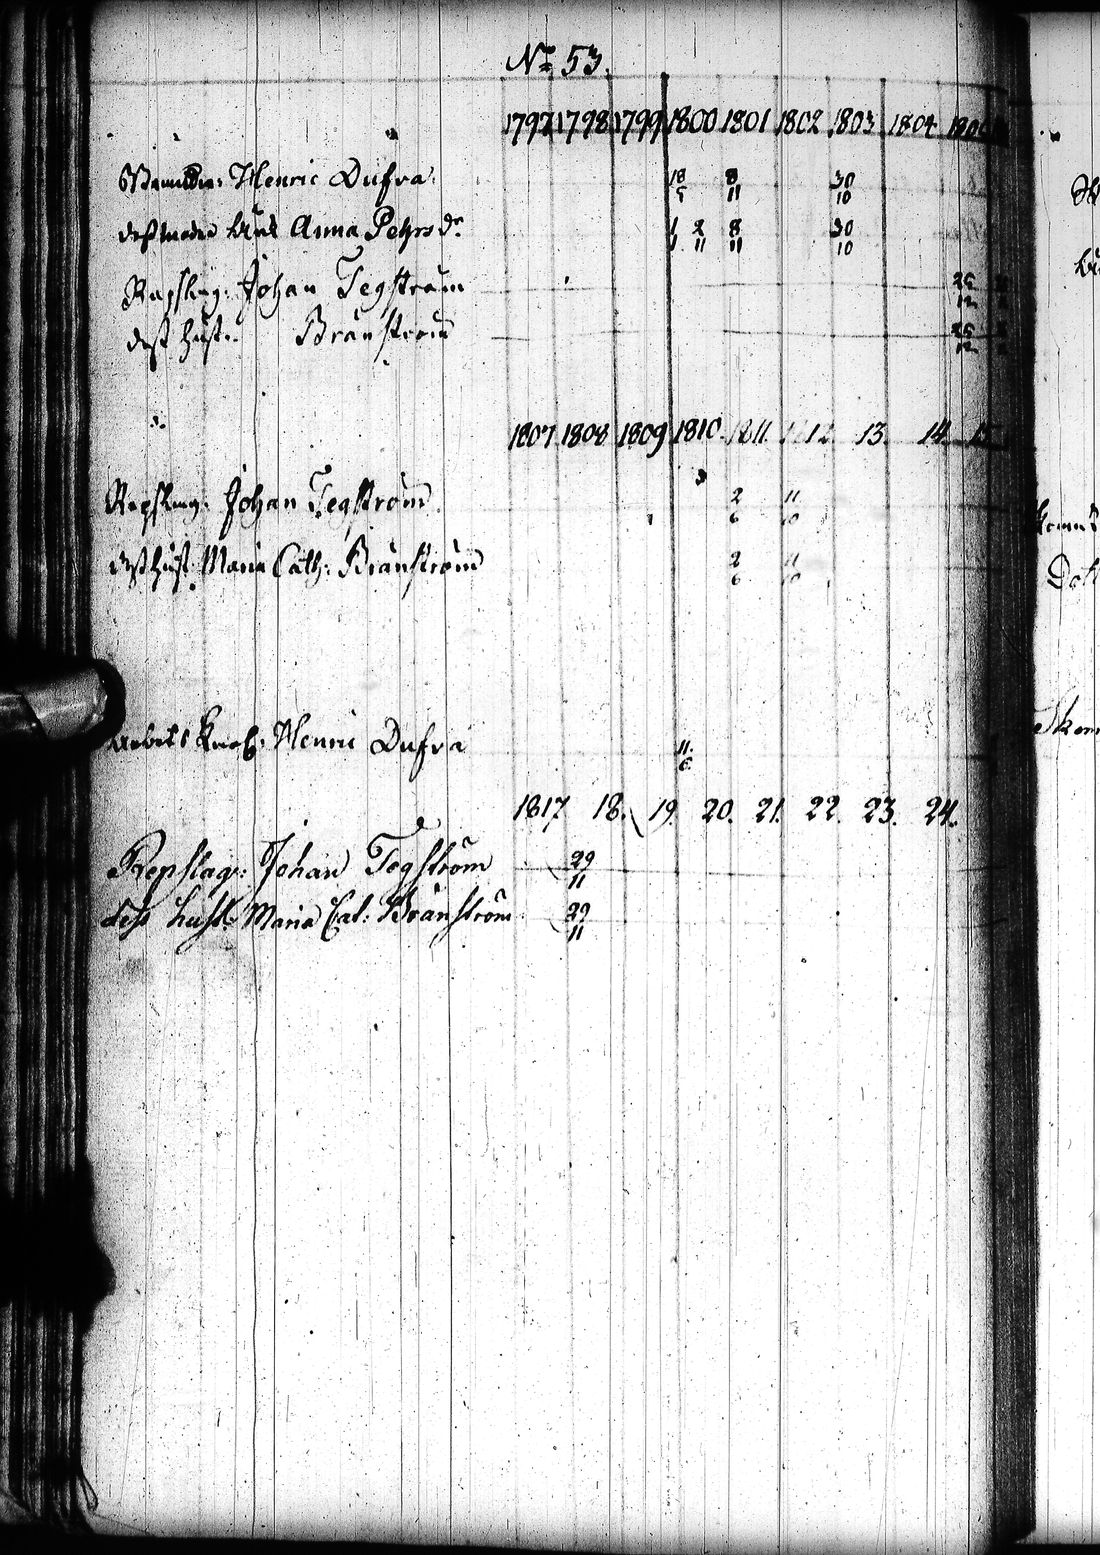 No 53.
1797 1798 1799 1800 1801 1802 1803 1804
Henric Dufva. 18/5 8/11 30/10
Anna Pehrsdr. 1/1 2/11 8/11 30/10
Repslag: Johan Tegström 25/12
dess hust: Brånström 25/12
1807 1808 1809 1810. 1811. 1812. 13. 14. 15
Repslag: Johan Tegström 2/6 11/10
dess hust. Maria Cath: Brånström 2/6 11/10
Henric Dufva 11/6
1817 18. 19. 20. 21. 22. 23. 24.
Repslag: Johan Tegström 29/11
dess hust: Maria Cat: Brånström 29/11